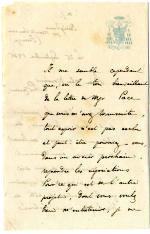 Il me semble cependant
que, vu le ton bienveillant
de la lettre de Mgr Pace
que vous m'avez transmise,
tout espoir n'est pas perdu
et peut-être pourrez-vous,
dans un avenir prochain,
reprendre les négociations
Pour ce qui est de l'autre
projet, dont vous voulez
bien m'entretenir, je me